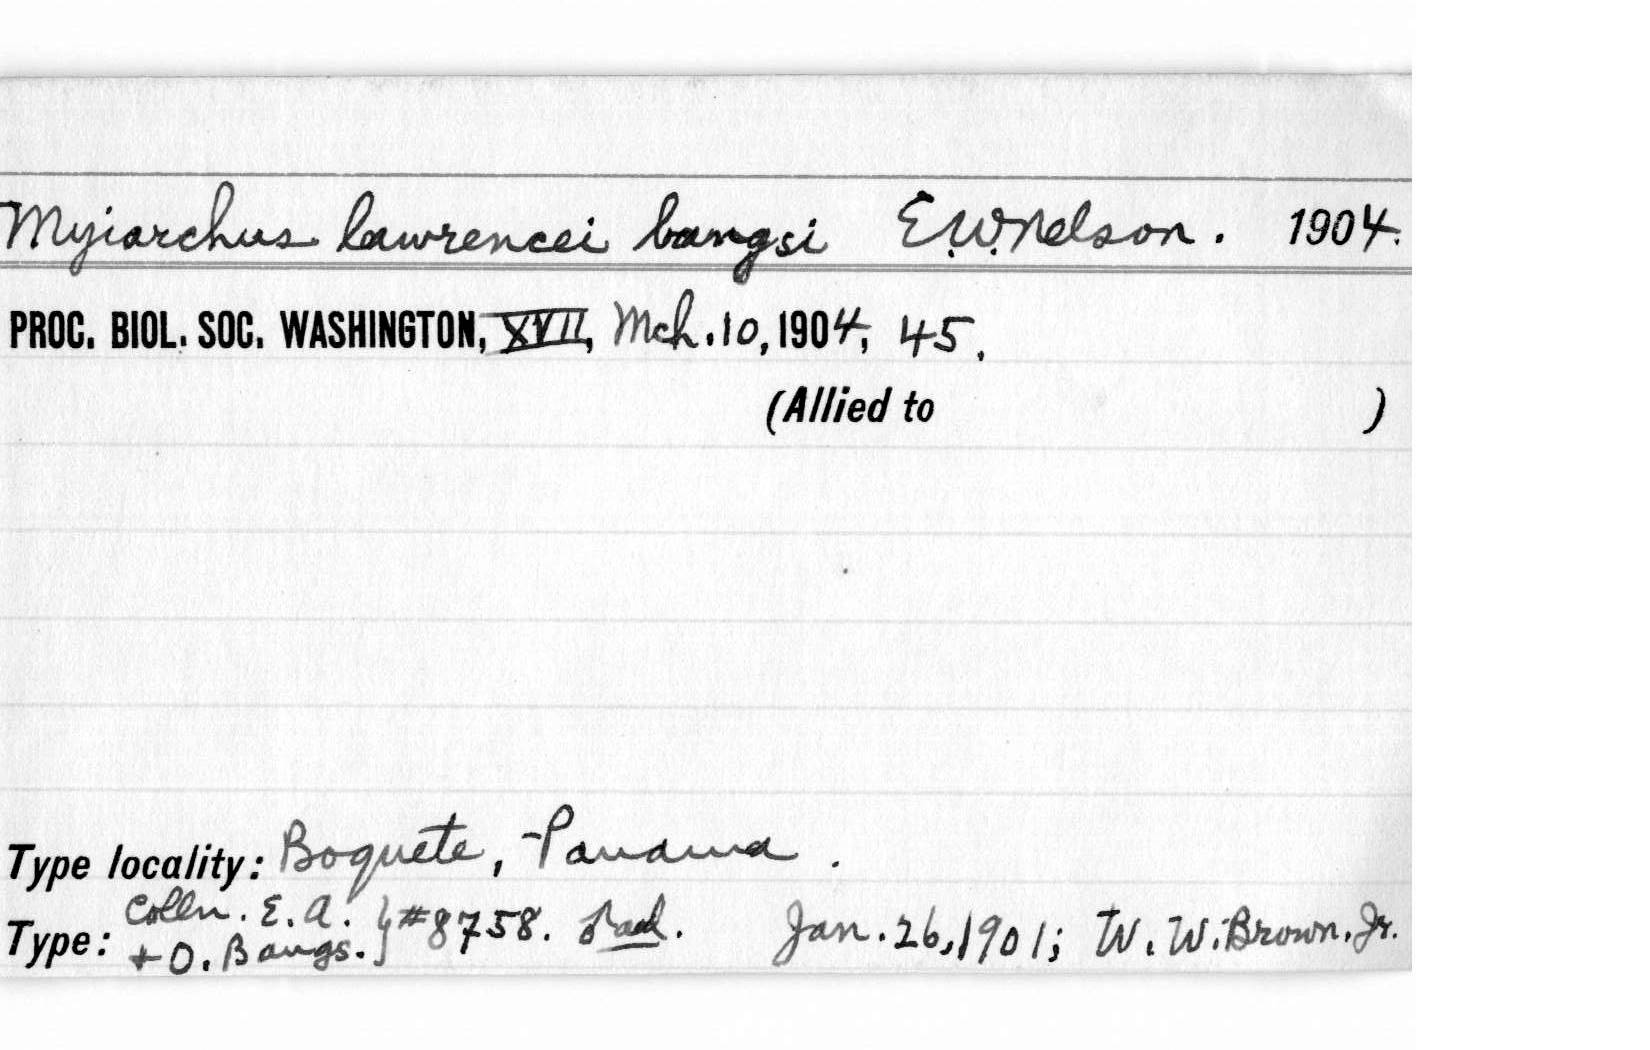 Myiarchus lawrencei bangsi E.W. Nelson. 1904.
PROC. BIOL. SOC. WASHINGTON, XVII, Mch. 10, 1904, 45.
(Allied to )
Type locality: Boquete, Panama.
Type: Colln. E. A. & O. Bangs. } #8758. ad. Jan. 26, 1901; W. W. Brown, Jr.